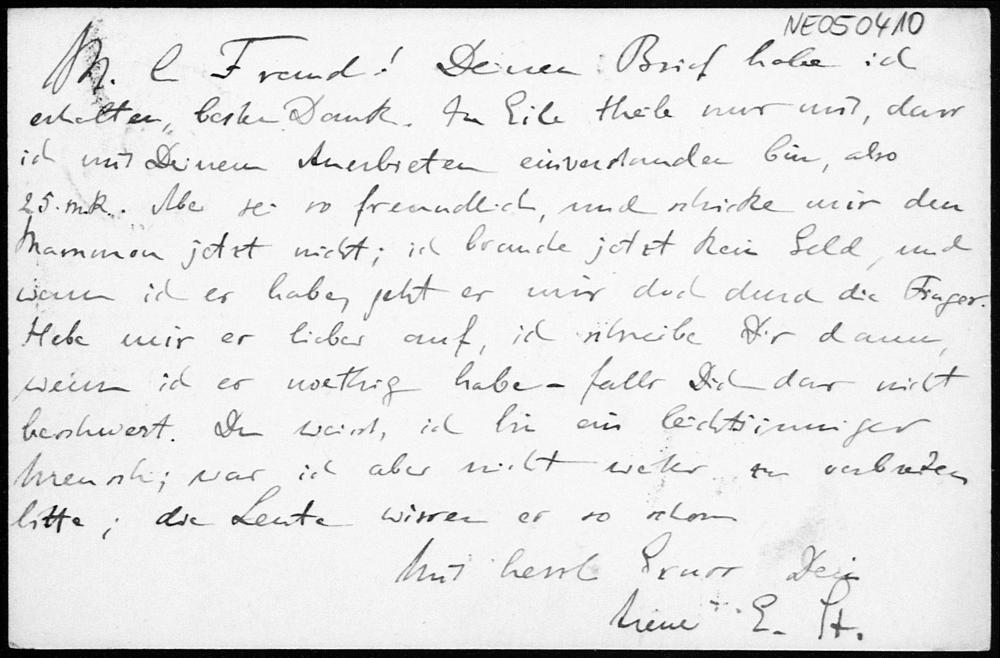 NE050410
M. l. Freund! Deinen Brief habe ich
erhalten, besten Dank. In Eile theile nur mit, dass
ich mit Deinem Anerbieten einverstanden bin, also
25. mk. Aber sei so freundlich, und schicke mir den
Mammon jetzt nicht; ich brauche jetzt kein Geld, und
wenn ich es habe, geht es mir doch durch die Finger.
Hebe mir es lieber auf, ich schreibe Dir dann,
wenn ich es noethig habe - falls Dich das nicht
beschwert. Du weisst, ich bin ein leichtsinniger
Mensch; was ich aber nicht weiter zu verbreiten
bitte; die Leute wissen es so schon
Mit herzl Gruss Dein
E. St.